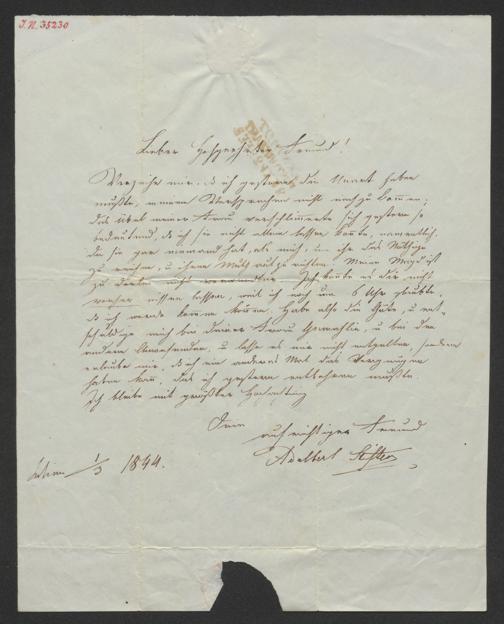 I.N. 35230
Lieber hochverehrter Freund!
Verzeihe mir, daß ich gestern die Unart haben
mußte, meinem Versprechen nicht nachzukommen;
das Übel meiner Frau verschlimmerte sich gestern so
bedeutend, daß ich sie nicht allein lassen konnte, namentlich,
da sie gar niemand hat, als mich, um ihr das Nöthige
zu reichen, u ihren Muth aufzurichten. Meine Magd ist
zu nicht Ich konnte es dir nicht
wissen lassen, weil ich noch um 6 Uhr glaubte,
daß ich werde kommen können. Habe also die Güte, u ent-
schuldige mich bei deiner Frau Gemahlin, u bei den
andern Anwesenden, u lasse es mir nicht entgelten, sondern
erlaube mir, daß ich ein anderes Mal das Vergnügen
haben kann, das ich gestern entbehren mußte.
Ich bleibe mit größter Hochachtung
Dein
aufrichtiger Freund
Adalbert Stifter
1/3 1844.